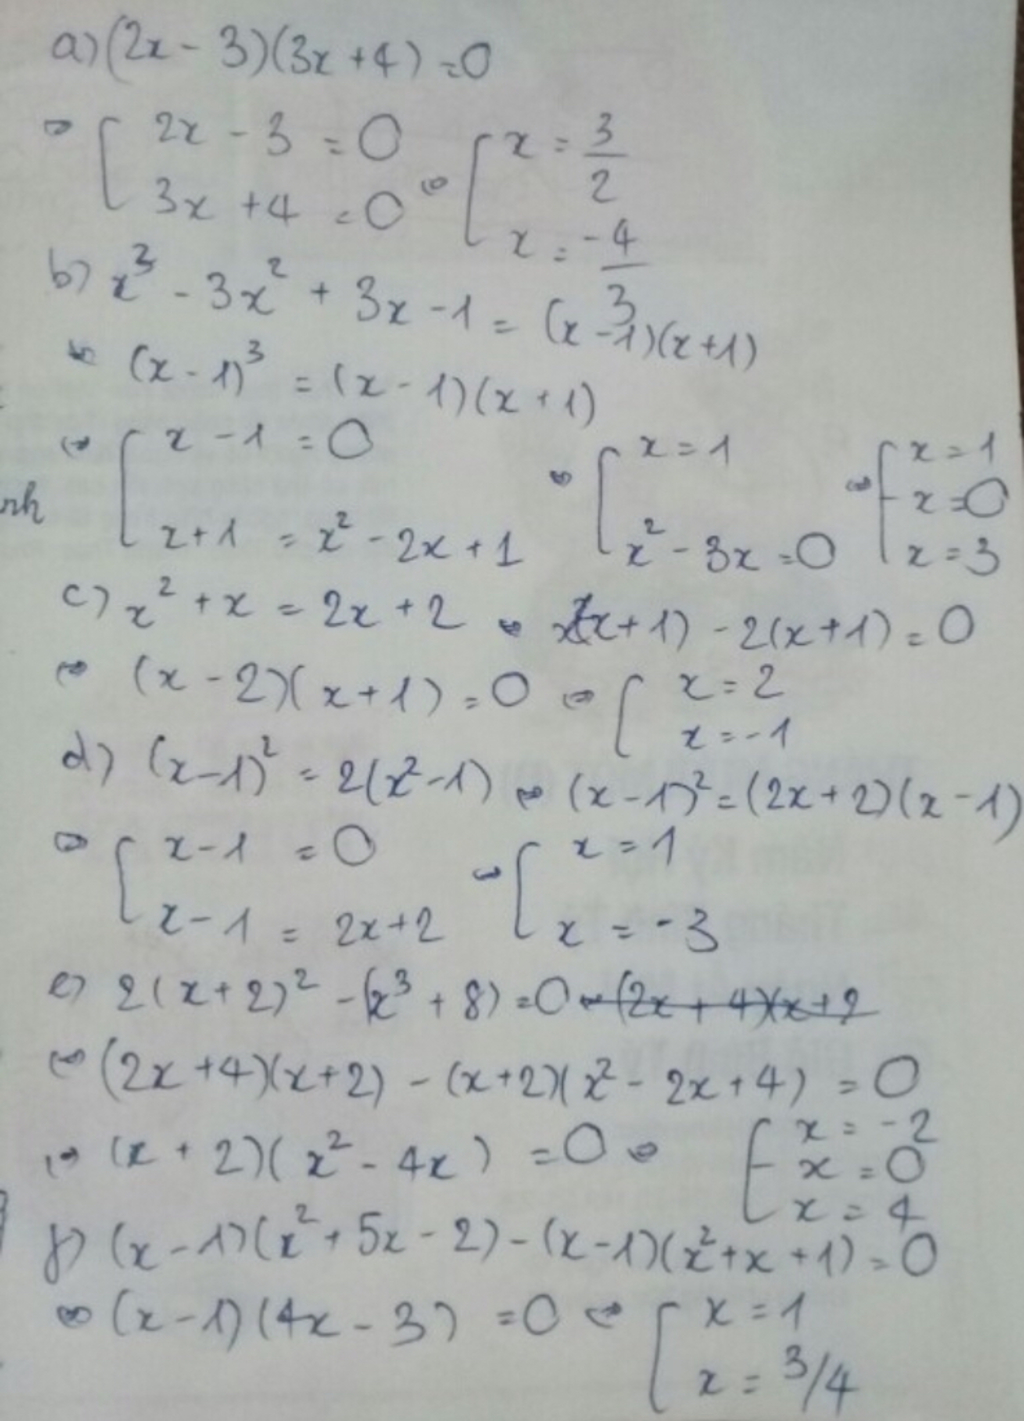 a) (2x - 3)(3x + 4) = 0
⇔ [ 2x - 3 = 0 ⇔ [ x = 3/2
3x + 4 = 0 x = -4/3
b) x³ - 3x² + 3x - 1 = (x - 1)(x + 1)
⇔ (x - 1)³ = (x - 1)(x + 1)
⇔ [ x - 1 = 0 ⇔ [ x = 1 ⇔ [ x = 1
x = 0
nh x + 1 = x² - 2x + 1 x² - 3x = 0 x = 3
c) x² + x = 2x + 2 ⇔ x(x + 1) - 2(x + 1) = 0
⇔ (x - 2)(x + 1) = 0 ⇔ [ x = 2
x = -1
d) (x - 1)² = 2(x² - 1) ⇔ (x - 1)² = (2x + 2)(x - 1)
⇔ [ x - 1 = 0 ⇔ [ x = 1
x - 1 = 2x + 2 x = -3
e) 2(x + 2)² - (x³ + 8) = 0 ⇔ (2x + 4)(x + 2
⇔ (2x + 4)(x + 2) - (x + 2)(x² - 2x + 4) = 0
⇔ (x + 2)(x² - 4x) = 0 ⇔ [ x = -2
x = 0
x = 4
f) (x - 1)(x² + 5x - 2) - (x - 1)(x² + x + 1) = 0
⇔ (x - 1)(4x - 3) = 0 ⇔ [ x = 1
x = 3/4